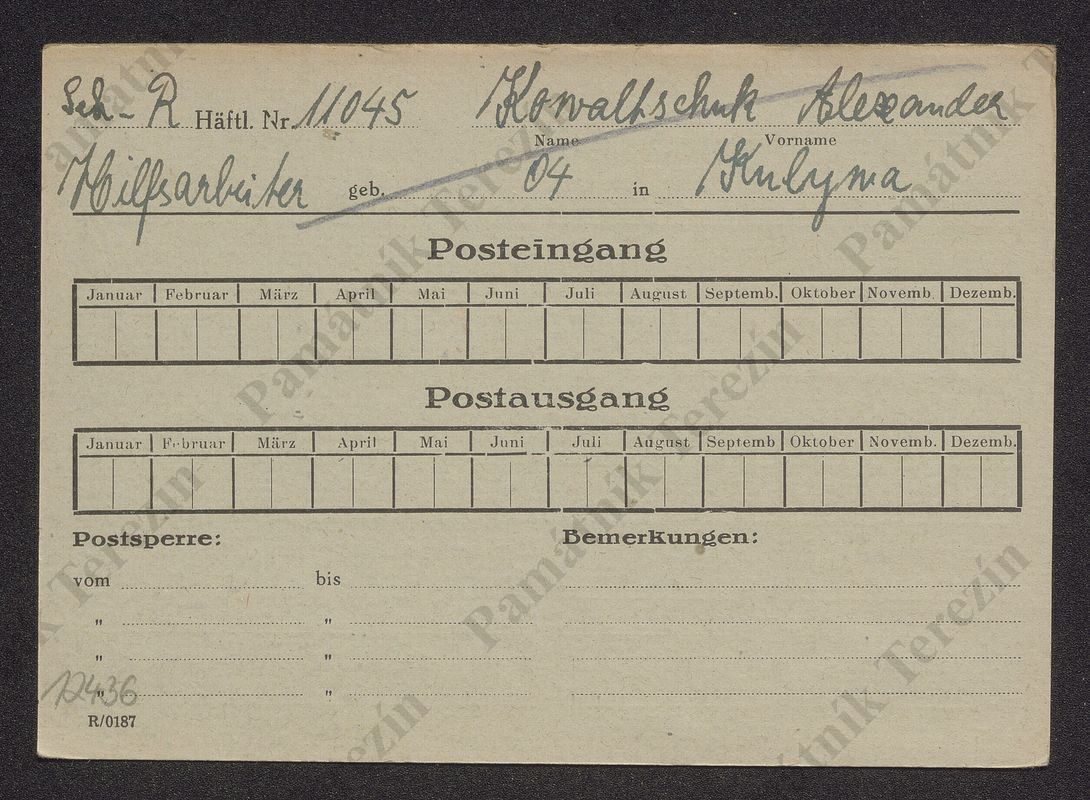 Sch - R Häftl. Nr. 11045 Kowaltschuk Alexander
Name Vorname
Hilfsarbeiter geb. 04 in Kulyma
Posteingang
Januar Februar März April Mai Juni Juli August Septemb. Oktober Novemb. Dezemb.
Postausgang
Januar Februar März April Mai Juni Juli August Septemb Oktober Novemb. Dezemb.
Postsperre: Bemerkungen:
vom bis
" "
" "
" "
12436
R/0187
Památník Terezín